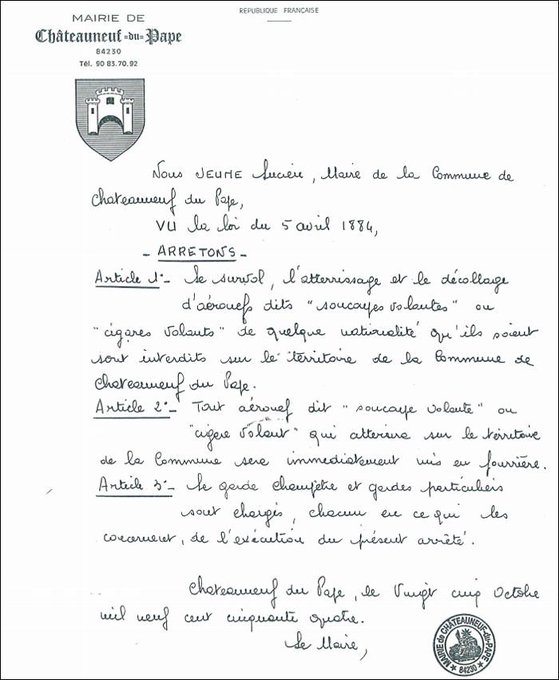 REPUBLIQUE FRANÇAISE
MAIRIE DE
Châteauneuf-du-Pape
84230
Tél. 90 83.70.92
Nous JEUNE Lucien, Maire de la Commune de
Chateauneuf du Pape,
VU la loi du 5 avril 1884,
- ARRETONS -
Article 1°- Le survol, l'atterrissage et le décollage
d'aéronefs dits "soucoupes volantes" ou
"cigares volants" de quelque nationalité qu'ils soient
sont interdits sur le territoire de la Commune de
Chateauneuf du Pape.
Article 2°- Tout aéronef dit "soucoupe volante" ou
"cigare volant" qui atterira sur le territoire
de la Commune sera immédiatement mis en fourrière.
Article 3°- Le garde champêtre et gardes particuliers
sont chargés, chacun en ce qui les
concernent, de l'exécution du présent arrêté.
Chateauneuf du Pape, le Vingt cinq Octobre
mil neuf cent cinquante quatre.
Le Maire,
MAIRIE de CHÂTEAUNEUF-du-PAPE